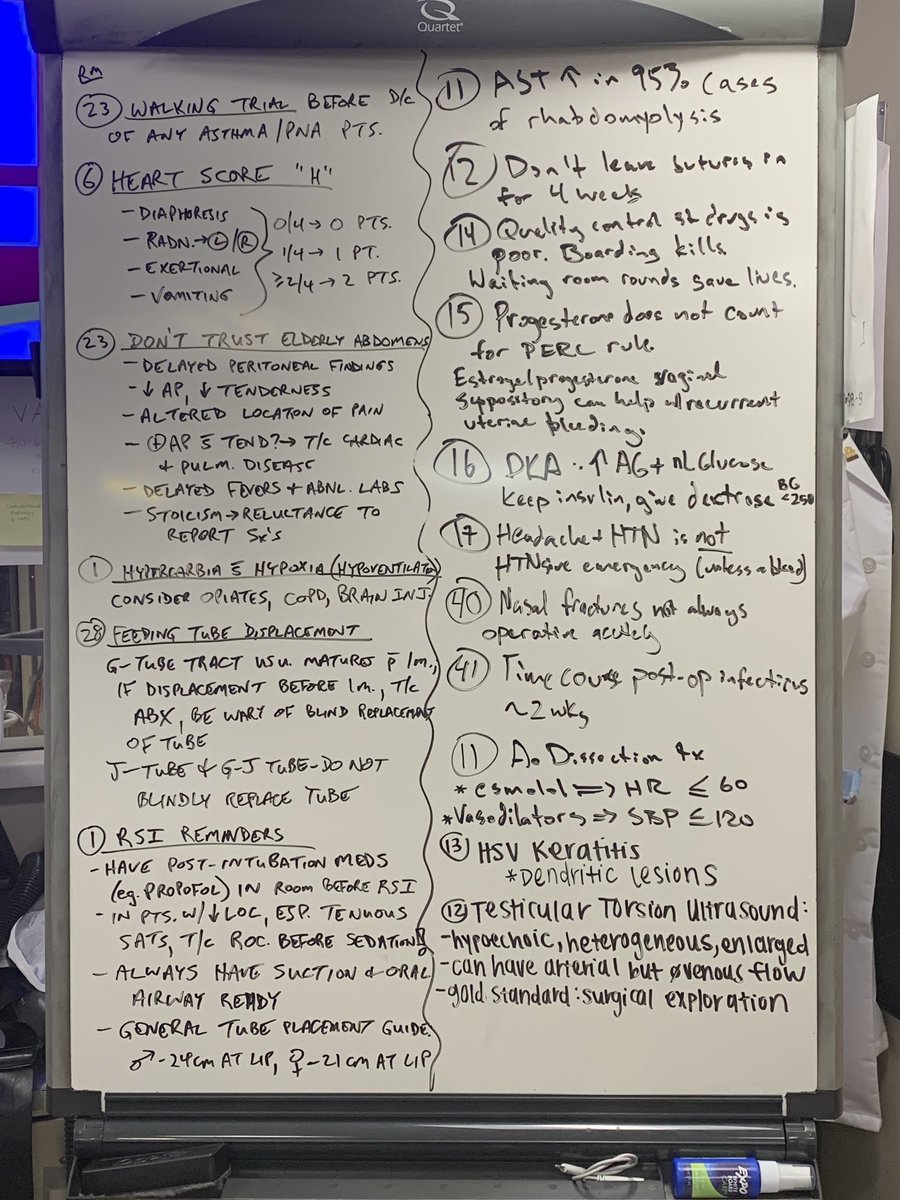 Quartet
RM
23 WALKING TRIAL BEFORE D/C
OF ANY ASTHMA/PNA PTS.
6 HEART SCORE "H"
- DIAPHORESIS
- RADN.→Ⓛ/Ⓡ
- EXERTIONAL
- VOMITING
0/4→ 0 PTS.
1/4→ 1 PT.
≥2/4→ 2 PTS.
23 DON'T TRUST ELDERLY ABDOMENS
- DELAYED PERITONEAL FINDINGS
- ↓ AP, ↓ TENDERNESS
- ALTERED LOCATION OF PAIN
- ⊕AP s̄ TEND?→ T/C CARDIAC
& PULM. DISEASE
- DELAYED FEVERS + ABNL. LABS
- STOICISM→RELUCTANCE TO
REPORT SX'S
1 HYPERCARBIA s̄ HYPOXIA (HYPOVENTILATE)
CONSIDER OPIATES, COPD, BRAIN INJ.
28 FEEDING TUBE DISPLACEMENT
G-TUBE TRACT USU. MATURES p̄ 1m.,
IF DISPLACEMENT BEFORE 1m., T/C
ABX, BE WARY OF BLIND REPLACEMENT
OF TUBE
J-TUBE & G-J TUBE-DO NOT
BLINDLY REPLACE TUBE
1 RSI REMINDERS
- HAVE POST-INTUBATION MEDS
(eg. PROPOFOL) IN ROOM BEFORE RSI
- IN PTS. W/↓LOC, ESP. TENUOUS
SATS, T/C ROC. BEFORE SEDATION!
- ALWAYS HAVE SUCTION & ORAL
AIRWAY READY
- GENERAL TUBE PLACEMENT GUIDE
♂-24cm AT LIP, ♀-21cm AT LIP
11 AST ↑ in 95% cases
of rhabdomyolysis
12 Don't leave sutures in
for 4 weeks
14 Quality control st drugs is
poor. Boarding kills.
Waiting room rounds save lives.
15 Progesterone does not count
for PERC rule.
Estrogel/progesterone vaginal
suppository can help w/ recurrent
uterine bleeding.
16 DKA ↑ AG + nl Glucose
Keep insulin, give dextrose BG <250
17 Headache + HTN is not
HTNsive emergency (unless a bleed)
40 Nasal fractures not always
operative acutely
41 Time course post-op infections
~2 wks
11 Ao Dissection tx
*esmolol ⇒ HR ≤ 60
*Vasodilators ⇒ SBP ≤ 120
13 HSV Keratitis
*Dendritic lesions
12 Testicular Torsion Ultrasound:
-hypoechoic, heterogeneous, enlarged
-can have arterial but ∅ venous flow
-gold standard: surgical exploration
EXPO